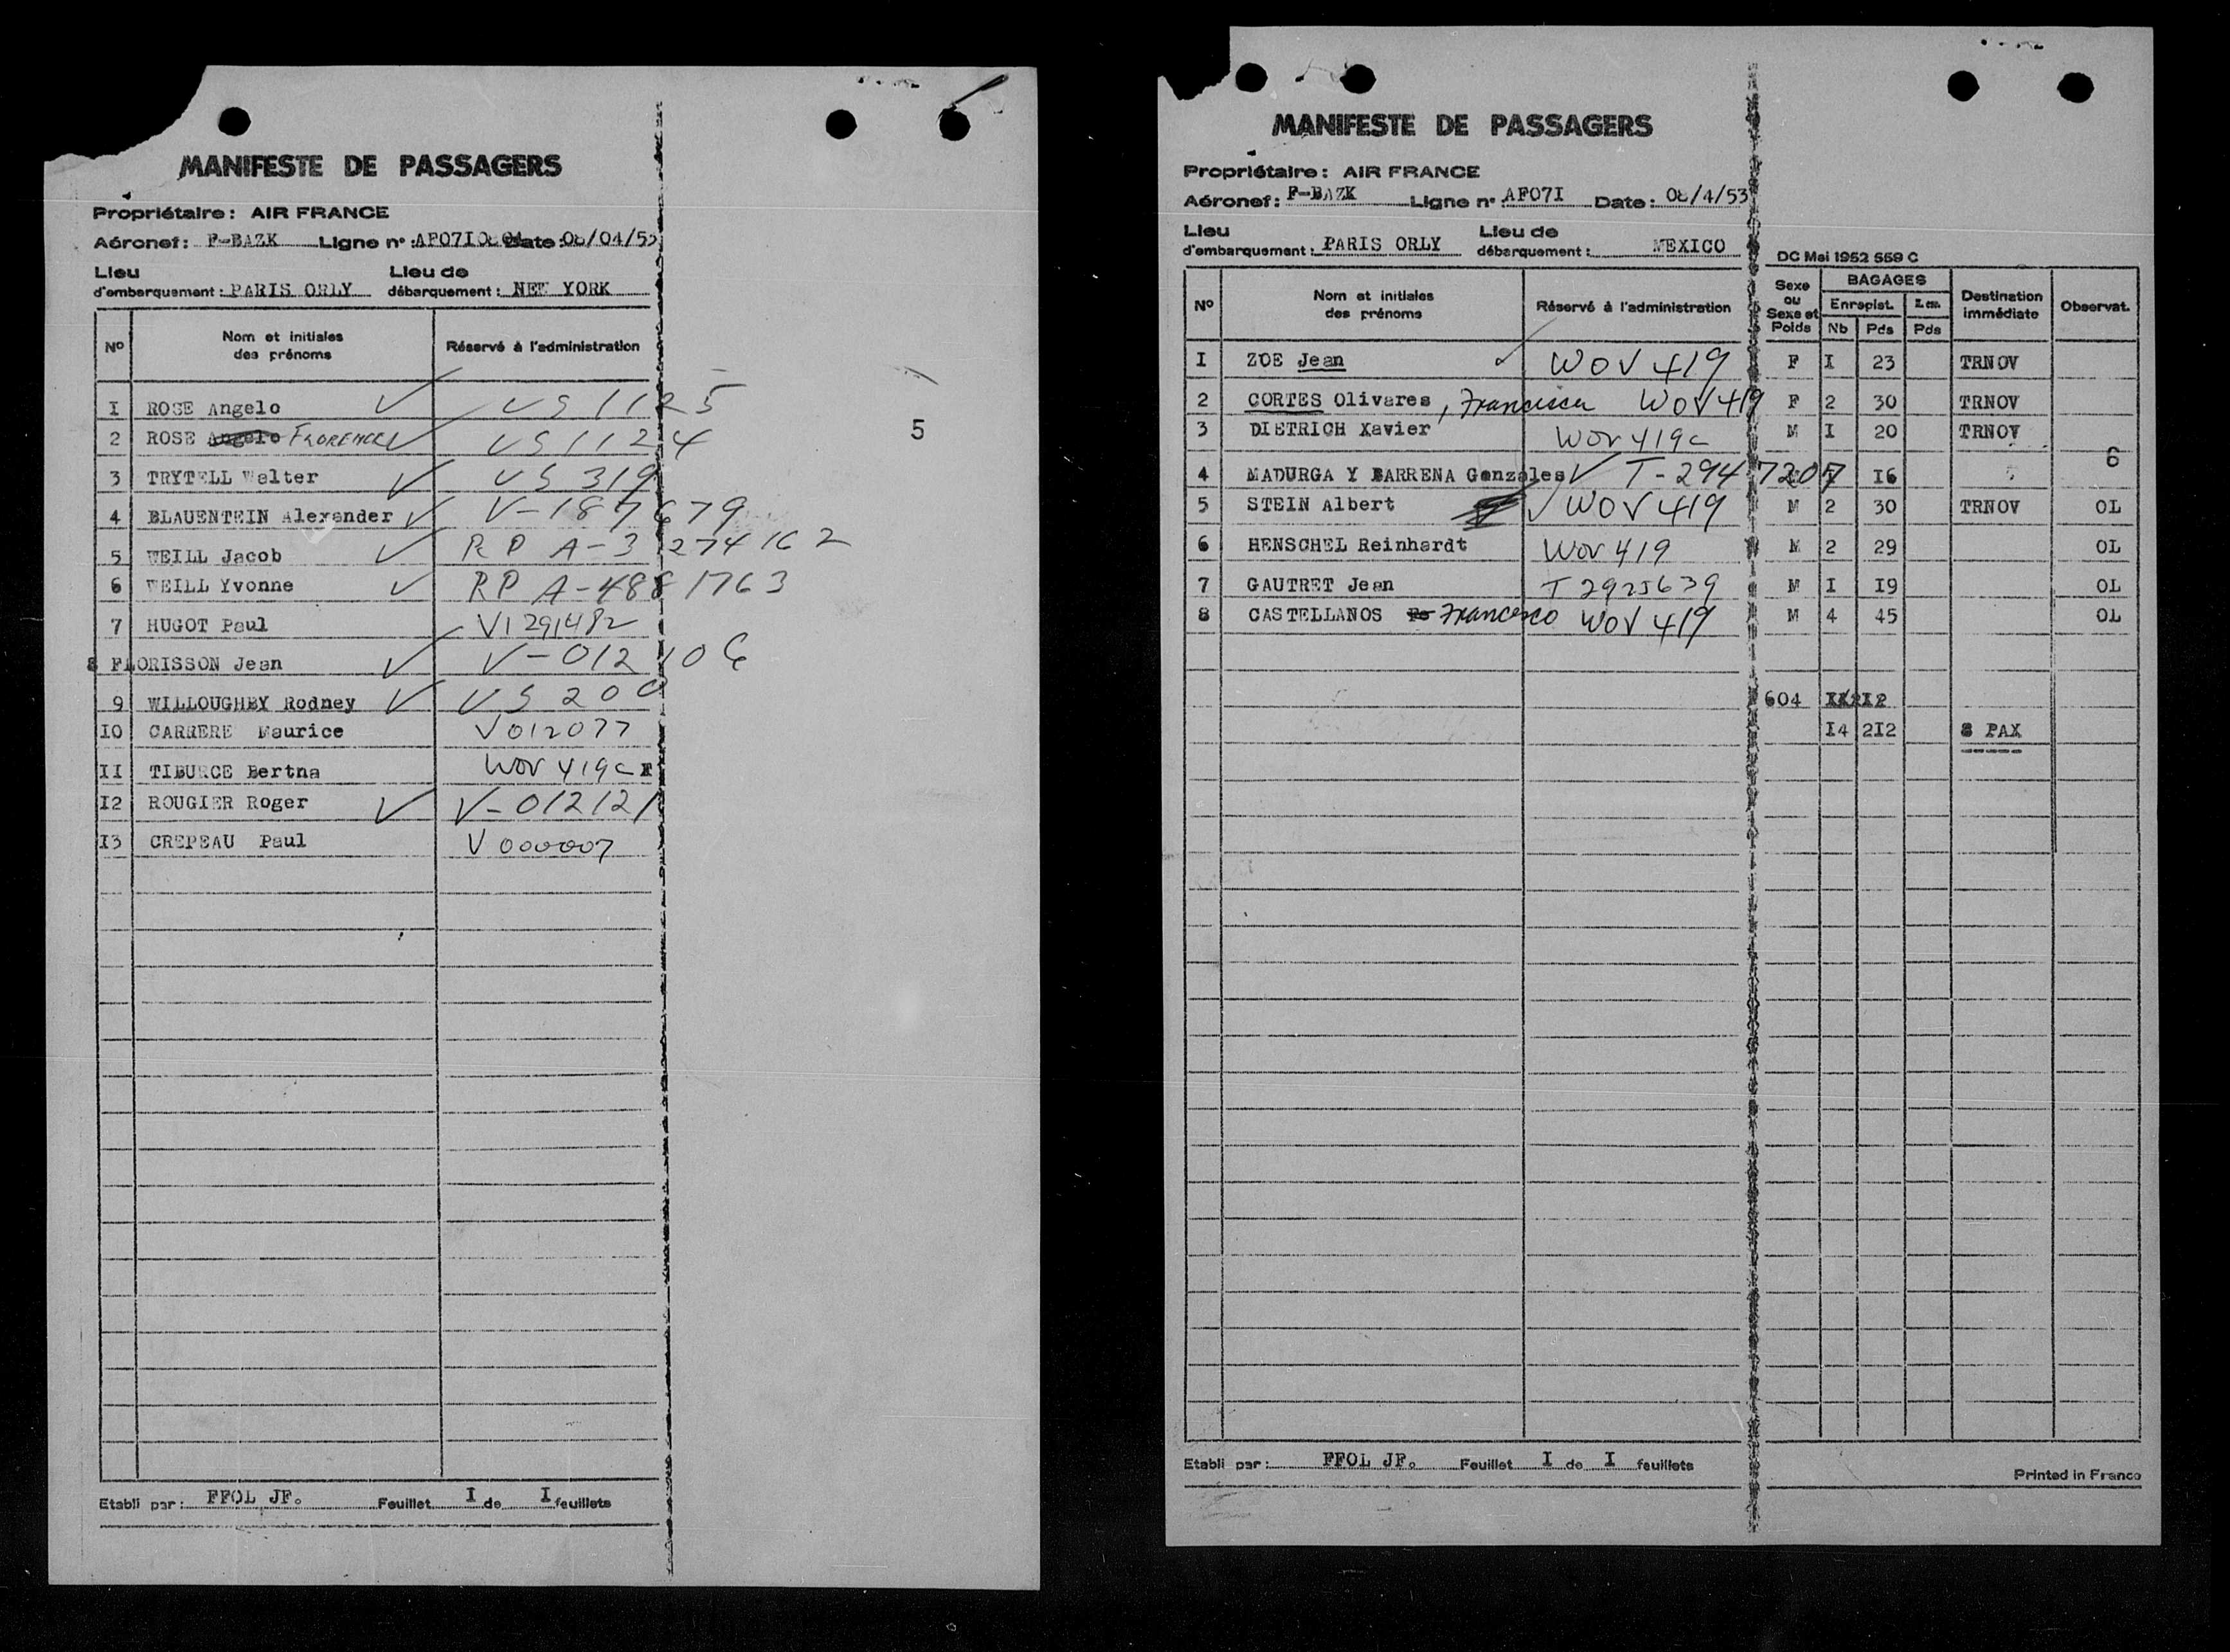 MANIFESTE DE PASSAGERS
Propriétaire : AIR FRANCE
Aéronef : F-BAZK Ligne n° : AF071 Date : 08/04/53
Lieu d'embarquement : PARIS ORLY Lieu de débarquement : NEW YORK
N° Nom et initiales des prénoms Réservé à l'administration
I ROSE Angelo US 1125
2 ROSE Angelo FLORENCE US 1124
5
3 TRYTELL Walter US 319
4 BLAUENTEIN Alexander V-187679
5 WEILL Jacob RP A-3274162
6 WEILL Yvonne RP A-4881763
7 HUGOT Paul V1291482
8 FLORISSON Jean V-012106
9 WILLOUGHBY Rodney US 200
10 CARRERE Maurice V012077
II TIBURCE Bertha WOV 419c F
I2 ROUGIER Roger V-012121
I3 CREPEAU Paul V000007
Etabli par : FFOL JF. Feuillet I de I feuillets
MANIFESTE DE PASSAGERS
Propriétaire : AIR FRANCE
Aéronef : F-BAZK Ligne n° AF07I Date : 08/4/53
Lieu d'embarquement : PARIS ORLY Lieu de débarquement : MEXICO
DC Mai 1952 559 C
N° Nom et initiales des prénoms Réservé à l'administration Sexe ou Sexe et Poids BAGAGES Enregist. Nb Pds Pds Destination immédiate Observat.
I ZOE Jean WOV 419 F I 23 TRNOV
2 CORTES Olivares, Francisca WOV 419 F 2 30 TRNOV
3 DIETRICH Xavier WOV 419c M I 20 TRNOV
6
4 MADURGA Y BARRENA Gonzales T-2947207 I6
5 STEIN Albert WOV 419 M 2 30 TRNOV OL
6 HENSCHEL Reinhardt WOV 419 M 2 29 OL
7 GAUTRET Jean T2925639 M I I9 OL
8 CASTELLANOS Francisco WOV 419 M 4 45 OL
604
I4 2I2 8 PAX
Etabli par : FFOL JF. Feuillet I de I feuillets
Printed in France